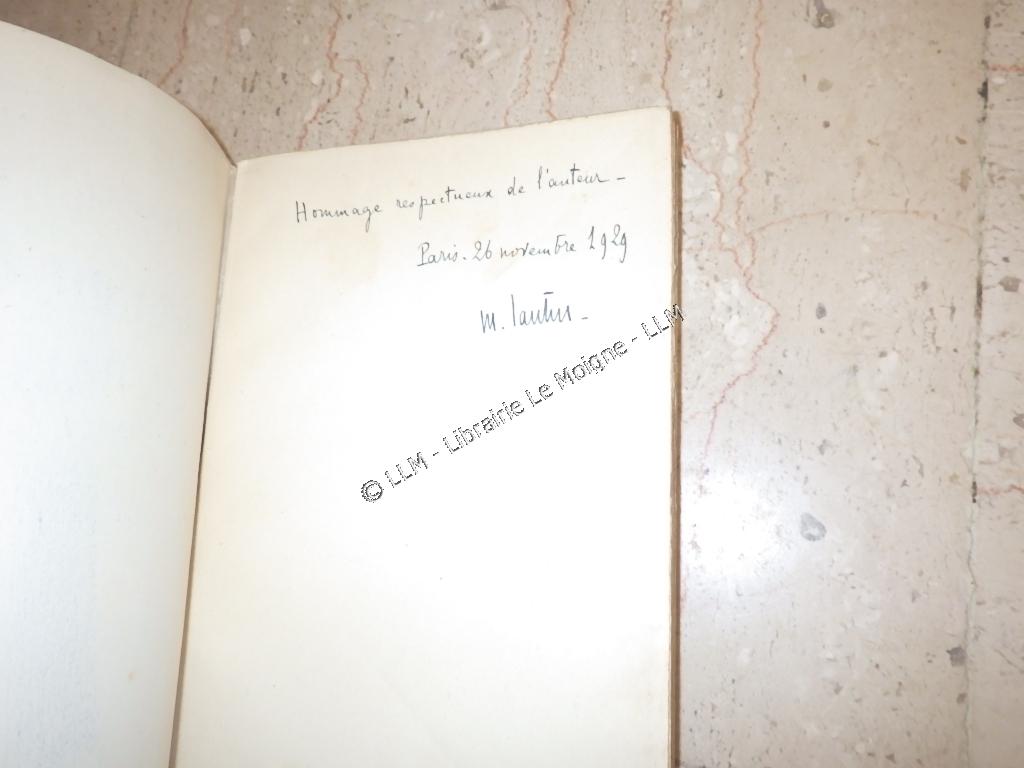 Hommage respectueux de l'auteur -
Paris. 26 novembre 1929
M.
© LLM - Librairie Le Moigne - LLM